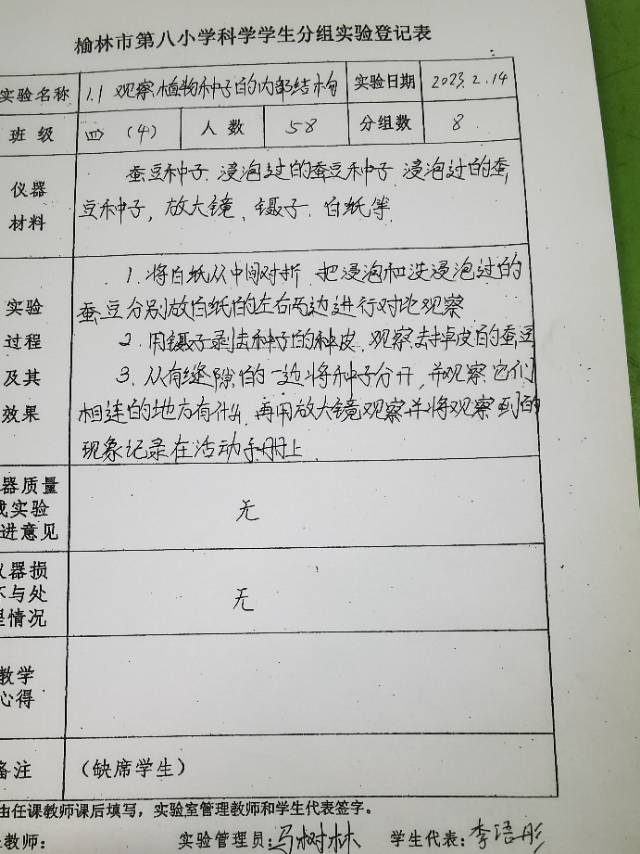 榆林市第八小学科学学生分组实验登记表
实验名称 1.1 观察植物种子的内部结构 实验日期 2023.2.14
班 级 四(4) 人 数 58 分组数 8
仪器 蚕豆种子.浸泡过的蚕豆种子 浸泡过的蚕
材料 豆种子,放大镜,镊子.白纸等
1.将白纸从中间对折 把浸泡和没浸泡过的
实验 蚕豆分别放白纸的左右两边进行对比观察
过程 2.用镊子剥去种子的种皮,观察去掉皮的蚕豆
及其 3.从有缝隙的一边将种子分开,并观察它们
效果 相连的地方有什么 再用放大镜观察并将观察到的
现象记录在活动手册上
器质量
或实验 无
进意见
仪器损
坏与处 无
理情况
教学
心得
备注 (缺席学生)
由任课教师课后填写,实验室管理教师和学生代表签字。
教师: 实验管理员:马树林 学生代表:李语彤